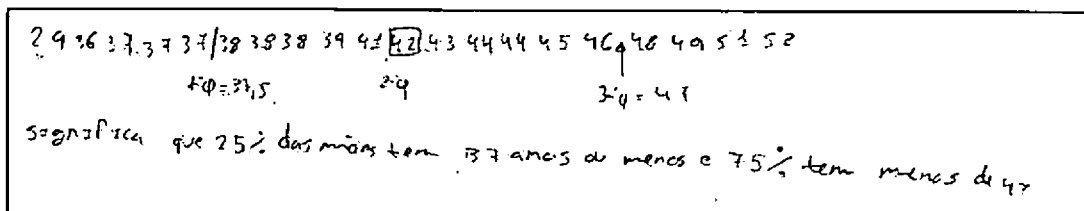 29 36 37 37 37/38 38 38 39 41 42 43 44 44 45 46 48 49 51 52
1ºq=37,5 2ºq 3ºq = 47
significa que 25% das mães tem 37 anos ou menos e 75% tem menos de 47